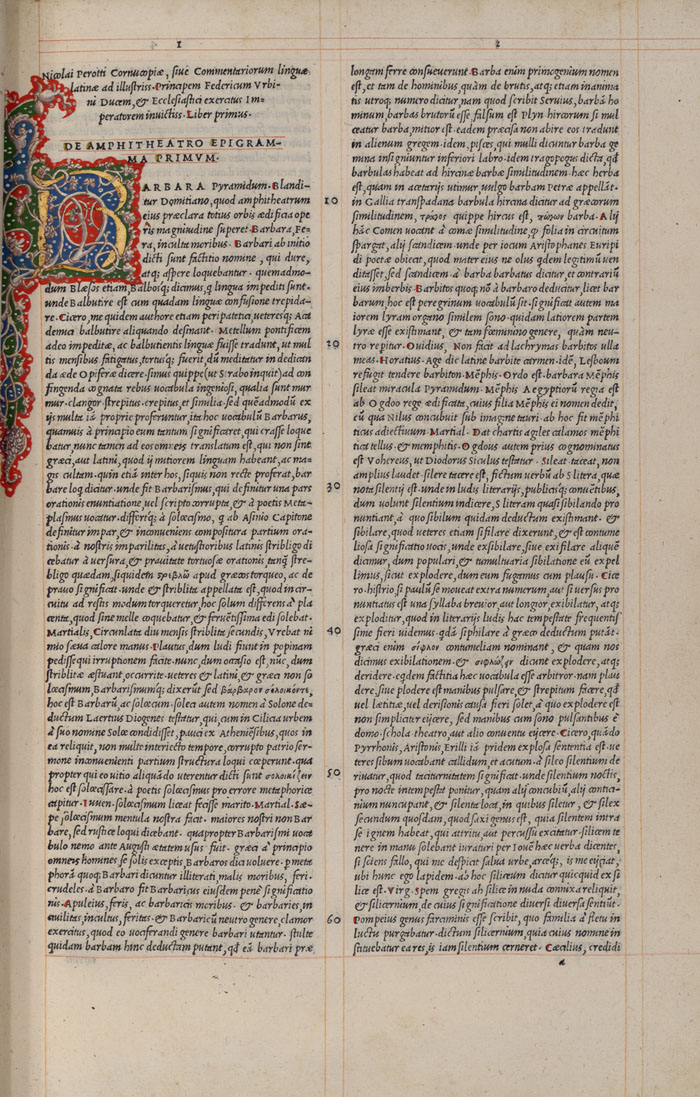 1
Nicolai Perotti Cornucopiæ, siue Commentariorum linguæ
latinæ ad illustriss. Principem Federicum Vrbi-
ni Ducem, & Ecclesiastici exercitus Im-
peratorem inuictiss. Liber primus.
DE AMPHITHEATRO EPIGRAM-
MA PRIMVM.
BARBARA Pyramidum. Blandi-
tur Domitiano, quod amphitheatrum
eius præclara totius orbis ædificia ope
ris magnitudine superet. Barbara, Fe-
ra, inculta moribus. Barbari ab initio
dicti sunt factitio nomine, qui dure,
atq; aspere loquebantur. quemadmo-
dum Blæsos etiam, Balbosq; dicimus, q lingua impediti sunt.
unde Balbutire est cum quadam linguæ confusione trepida-
re. Cicero, me quidem authore etiam peripatetici, ueteresq; Aca
demici balbutire aliquando desinant. Metellum pontificem
adeo impeditæ, ac balbutientis linguæ fuisse tradunt, ut mul
tis mensibus fatigatus, tortusq; fuerit, dū meditatur in dedican
da æde Opiferæ dicere. sinus quippe (ut Strabo inquit) ad con
fingenda cognata rebus uocabula ingeniosi, qualia sunt mur
mur. clangor. strepitus. crepitus, et similia. sed quēadmodū ex
ijs multa iā proprie proferuntur, ita hoc uocabulū Barbarus,
quamuis à principio eum tantum significaret, qui crasse loque
batur, nunc tamen ad eos omneis translatum est, qui non sint
græci, aut latini, quod ij mitiorem linguam habeant, ac ma-
gis cultam. quin etiā inter hos, siquis non recte proferat, bar
bare loq dicitur. unde fit Barbarismus, qui definitur una pars
orationis enuntiatione, uel scripto corrupta, & à poetis Meta-
plasmus uocatur. differtq; à solœcismo, q ab Asinio Capitone
definitur impar, & inconueniens compositura partium ora-
tionis. à nostris imparilitas, à uetustioribus latinis stribligo di
cebatur à uersura, & prauitate tortuosæ orationis tanq̄ stre-
bligo quædam, siquidem ϛρεβλῶ apud græcos torqueo, ac de
prauo significat. unde & striblita appellata est, quod in cir-
cuitu ad restis modum torqueretur, hoc solum differens à pla
centa, quod sine melle coquebatur, & feruētissima edi solebat.
Martialis, Circunlata diu mensis striblita secundis, Vrebat ni
mio sæua calore manus. Plautus, dum ludi fiunt in popinam
pedisse qui irruptionem facite. nunc, dum occasio est, nūc, dum
striblitæ æstuant, occurrite. ueteres & latini, & græci non so
lœcismum, Barbarismumq; dixerūt sed βάρβαρον σόλοικόντε,
hoc est Barbarū, ac solœcum. solœci autem nomen à Solone de-
ductum Laertius Diogenes testatur, qui, cum in Cilicia urbem
à suo nomine Solœ condidisset, pauci ex Atheniēsibus, quos in
ea reliquit, non multo interiecto tempore, corrupto patrio ser-
mone inconuenienti partium structura loqui cœperunt. qua
propter qui eo uitio aliquādo uterentur dicti sunt σολοικίζειν
hoc est solœcissare. à poetis solœcismus pro errore metaphorice
capitur. Iuuen. solœcismum liceat fecisse marito. Martial. Sæ-
pe solœcismum mentula nostra facit. maiores nostri non Bar
bare, sed rustice loqui dicebant. quapropter Barbarismi uoca
bulo nemo ante Augusti ætatem usus fuit. græci à principio
omneis homines se solis exceptis, Barbaros dici uoluere. p meta
phorā quoq; Barbari dicuntur illiterati, malis moribus, feri.
crudeles. à Barbaro fit Barbaricus eiusdem penē significatio
nis. Apuleius, feris, ac barbaricis moribus. & barbaries, in
ciuilitas, incultus, feritas. & Barbaricū neutro genere, clamor
exercitus, quod eo uociferandi genere barbari utantur. stulte
quidam barbam hinc deductam putant, qđ ea barbari præ,
10
20
30
40
50
60
2
longam ferre consueuerunt. Barba enim primogenium nomen
est, et tam de hominibus, quàm de brutis, atq; etiam inanima
tis utroq; numero dicitur, nam quod scribit Seruius, barbā ho
minum, barbas brutorū esse, falsum est. Plyn. hircorum si mul
ceatur barba, mitior est. eadem præcisa non abire eos tradunt
in alienum gregem. idem, pisces, qui mulli dicuntur barba ge
mina insigniuntur inferiori labro. idem tragopogus dicta, qđ
barbulas habeat ad hircinæ barbæ similitudinem. hæc herba
est, quam in acetarijs utimur, uulgo barbam Petræ appellāt.
in Gallia transpadana barbula hircina dicitur ad græcorum
similitudinem, τράγος quippe hircus est, πώγων barba. Alij
hāc Comen uocant à comæ similitudine, φ folia in circuitum
spargat, alij scandicem. unde per iocum Aristophanes Euripi
di poetæ obiecit, quod mater eius ne olus qdem legitimū uen
ditasset, sed scandicem. à barba barbatus dicitur, et contrariū
eius imberbis. Barbitos quoq; nō à barbaro deducitur, licet bar
barum, hoc est peregrinum uocabulū sit. significat autem ma
iorem lyram organo similem sono. quidam latiorem partem
lyræ esse existimant, & tam fœminino genere, quàm neu-
tro repitur. Ouidius, Non facit ad lachrymas barbitos ulla
meas. Horatius. Age dic latine barbite carmen. idē, Lesboum
refugit tendere barbiton. Mēphis. Ordo est. barbara Mēphis
sileat miracula Pyramidum. Mēphis Aegyptiorū regia est
ab Ogdoo rege ædificata, cuius filia Mēphis ei nomen dedit,
cū qua Nilus concubuit sub imagine tauri. ab hoc fit mēphi
ticus adiectiuum. Martial. Dat chartis agiles calamos mēphi
tica tellus. & memphitis. Ogdous autem prius cognominatus
est Vohereus, ut Diodorus Siculus testatur. Sileat. taceat, non
amplius laudet. silere tacere est, fictum uerbū ab S litera, quæ
nota silentij est. unde in ludis literarijs, publicisq; conuētibus,
dum uolunt silentium indicere, S literam quasi sibilando pro
nuntiant, à quo sibilum quidam deductum existimant. &
sibilare, quod ueteres etiam sifilare dixerunt, & est contume
liosa significatio uocis, unde exsibilare, siue exifilare aliquē
dicimur, dum populari, & tumultuaria sibilatione eū expel
limus, sicut explodere, dum eum fugamus cum plausu. Cice
ro. histrio si paulū se moueat extra numerum, aut si uersus pro
nuntiatus est una syllaba breuior, aut longior, exibilatur, atq;
exploditur, quod in literarijs ludis hac tempestate frequentis
sime fieri uidemus. qdā siphilare à græco deductum putāt.
græci enim σίφλον contumeliam nominant, & quam nos
dicimus exhibilationem. & σιφλῶζην dicunt explodere, atq;
deridere. qdem factitia hæc uocabula esse arbitror. nam plau
dere, siue plodere est manibus pulsare, & strepitum facere, qđ
uel lætitiæ, uel derisionis causa fieri solet, à quo explodere est
non simpliciter eijcere, sed manibus cum sono pulsantibus è
domo. schola. theatro, aut alio conuentu eijcere. Cicero, quādo
Pyrrhonis, Aristonis, Erilli iā pridem explosa sententia est. ue
teres sibum uocabant callidum, et acutum. à sileo silentium de
riuatur, quod taciturnitatem significat. unde silentium noctis,
pro nocte intempesta ponitur, quam alij concubiū, alij contici-
nium nuncupant, & silenta loca, in quibus siletur, & silex
secundum quosdam, quod saxi genus est, quia silentem intra
se ignem habeat, qui attritu, aut percussu excitatur. silicem te
nere in manu solebant iuraturi per Iouē hæc uerba dicentes,
si sciens fallo, qui me despicit salua urbe, arceq;, is me eijciat,
ubi hunc ego lapidem. ab hoc siliceum dicitur quicquid ex si
lice est. Virg. Spem gregis ah silice in nuda connixa reliquit,
& silicernium, de cuius significatione diuersi diuersa sentiūt.
Pompeius genus farciminis esse scribit, quo familia à fletu in
luctu purgabatur. dictum silicernium, quia cuius nomine in
stituebatur ea res, is iam silentium cerneret. Cæcilius, credidi
a